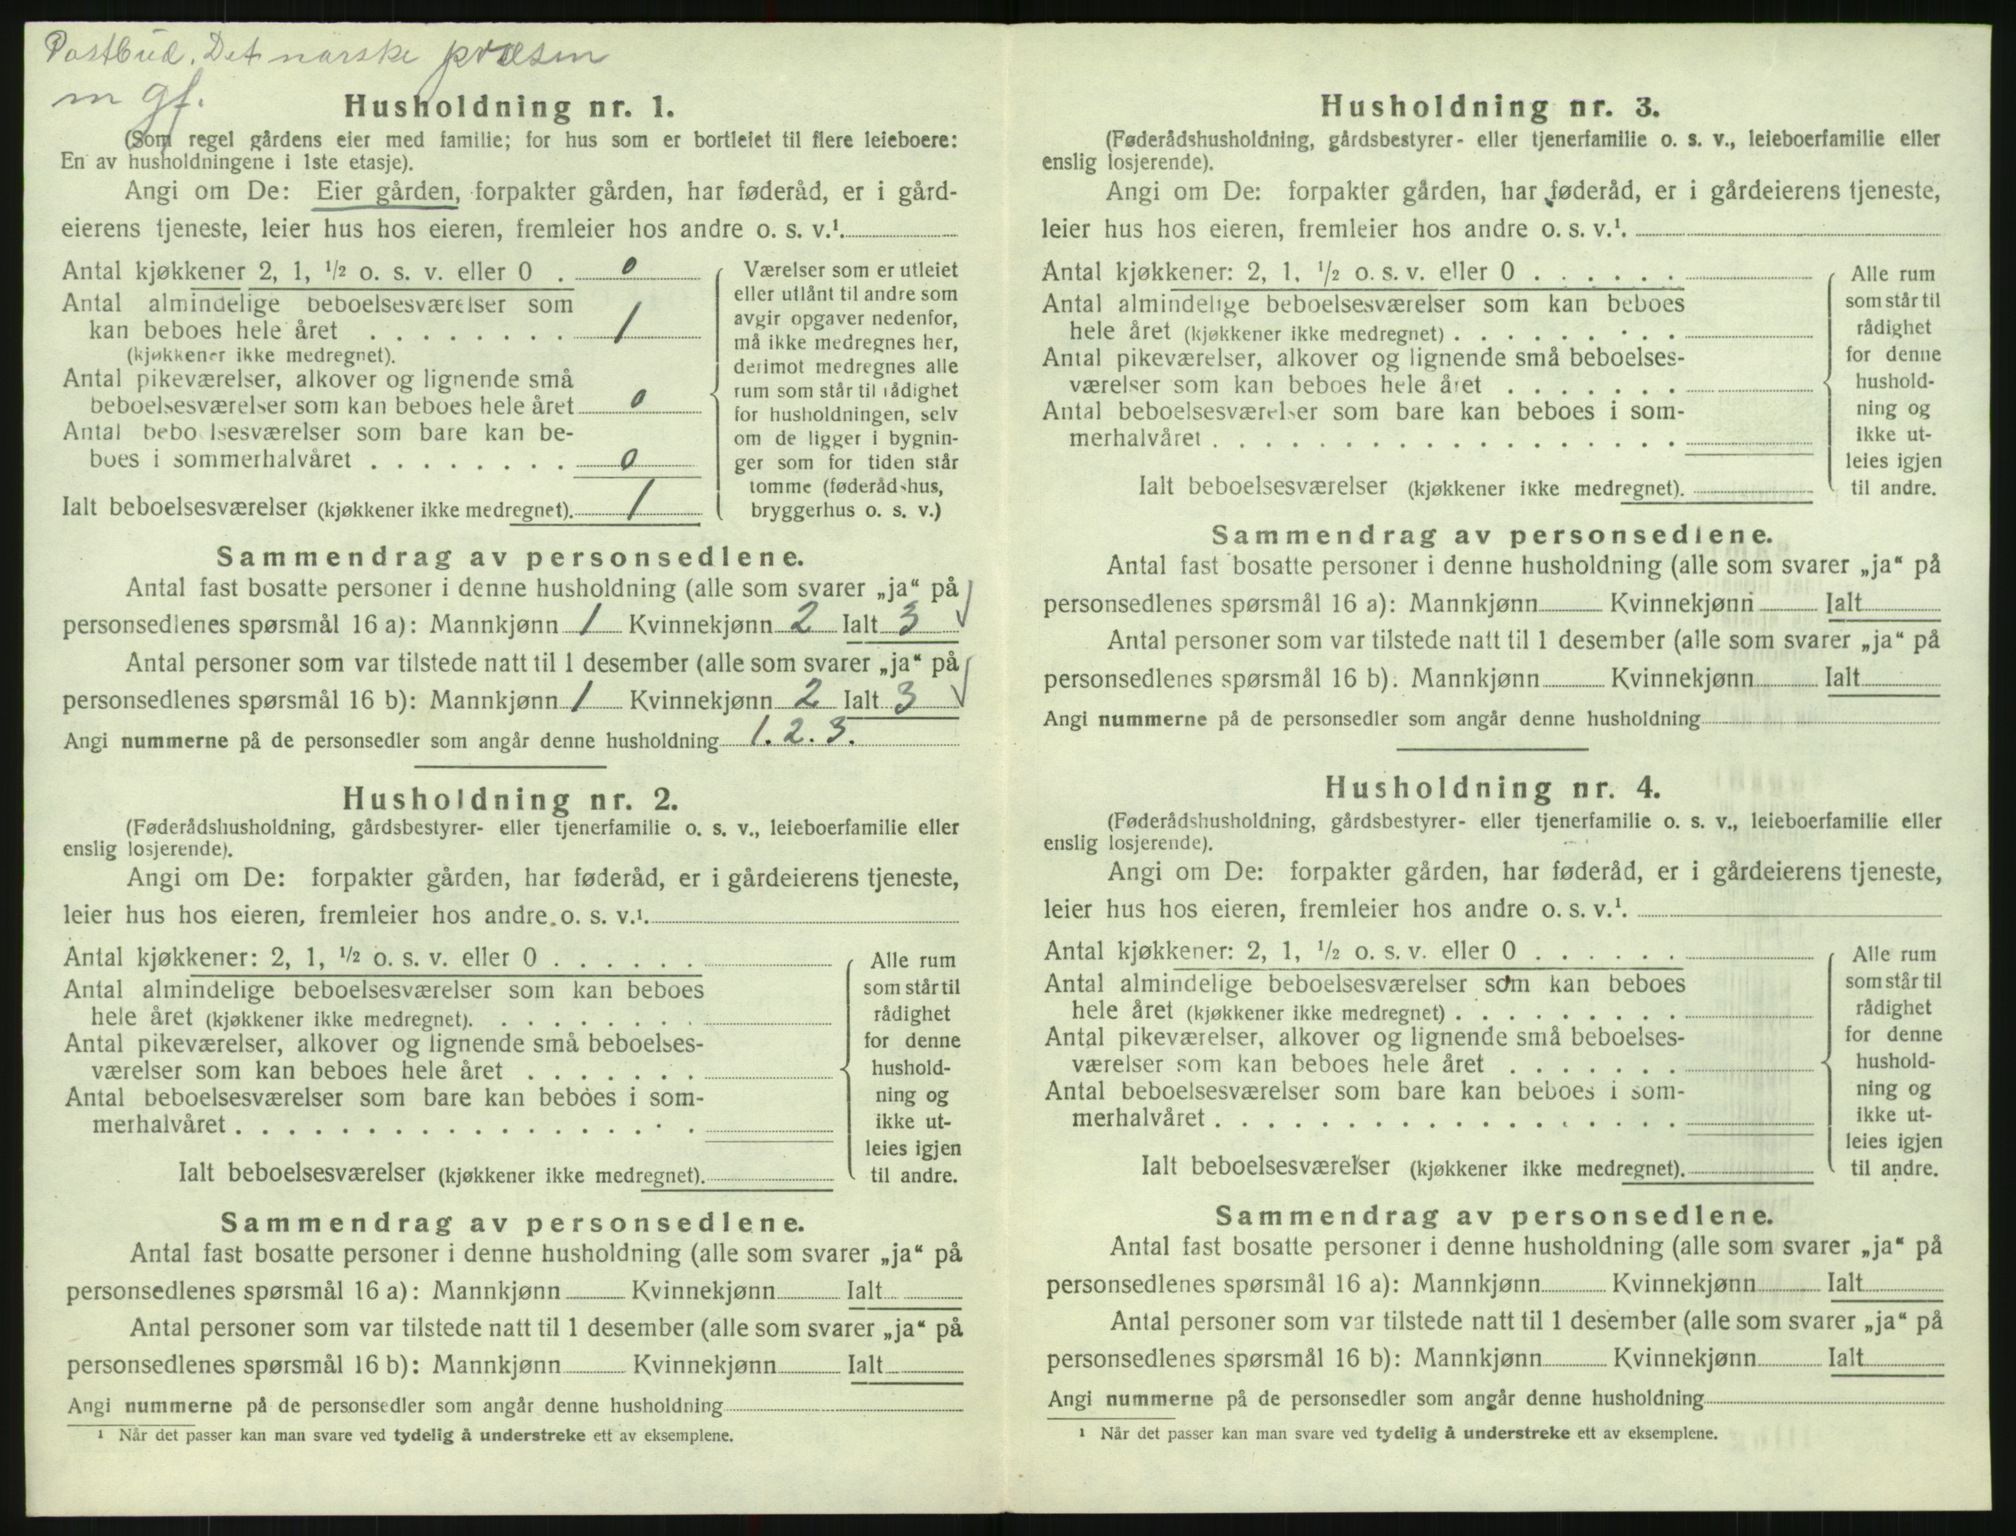 Postbud. Det norske
m gf.
Husholdning nr. 1.
(Som regel gårdens eier med familie; for hus som er bortleiet til flere leieboere:
En av husholdningene i 1ste etasje).
Angi om De: Eier gården, forpakter gården, har føderåd, er i gård-
eierens tjeneste, leier hus hos eieren, fremleier hos andre o. s. v.¹
Antal kjøkkener 2, 1, ½ o. s. v. eller 0 . 0
Antal almindelige beboelsesværelser som
kan beboes hele året . . . . . . . . 1
(kjøkkener ikke medregnet).
Antal pikeværelser, alkover og lignende små
beboelsesværelser som kan beboes hele året 0
Antal bebo lsesværelser som bare kan be-
boes i sommerhalvåret . . . . . . . . 0
Ialt beboelsesværelser (kjøkkener ikke medregnet). 1
Værelser som er utleiet
eller utlånt til andre som
avgir opgaver nedenfor,
må ikke medregnes her,
derimot medregnes alle
rum som står til rådighet
for husholdningen, selv
om de ligger i bygnin-
ger som for tiden står
tomme (føderådshus,
bryggerhus o. s. v.)
Sammendrag av personsedlene.
Antal fast bosatte personer i denne husholdning (alle som svarer „ja“ på
personsedlenes spørsmål 16 a): Mannkjønn 1 Kvinnekjønn 2 Ialt 3
Antal personer som var tilstede natt til 1 desember (alle som svarer „ja“ på
personsedlenes spørsmål 16 b): Mannkjønn 1 Kvinnekjønn 2 Ialt 3
Angi nummerne på de personsedler som angår denne husholdning 1. 2. 3.
Husholdning nr. 2.
(Føderådshusholdning, gårdsbestyrer- eller tjenerfamilie o. s. v., leieboerfamilie eller
enslig losjerende).
Angi om De: forpakter gården, har føderåd, er i gårdeierens tjeneste,
leier hus hos eieren, fremleier hos andre o. s. v.¹
Antal kjøkkener: 2, 1, ½ o. s. v. eller 0 . . . . . .
Antal almindelige beboelsesværelser som kan beboes
hele året (kjøkkener ikke medregnet). . . . . . . . .
Antal pikeværelser, alkover og lignende små beboelses-
værelser som kan beboes hele året . . . . . . .
Antal beboelsesværelser som bare kan beboes i som-
merhalvåret . . . . . . . . . . . . . . . . . .
Ialt beboelsesværelser (kjøkkener ikke medregnet).
Alle rum
som står til
rådighet
for denne
hushold-
ning og
ikke ut-
leies igjen
til andre.
Sammendrag av personsedlene.
Antal fast bosatte personer i denne husholdning (alle som svarer „ja“ på
personsedlenes spørsmål 16 a): Mannkjønn Kvinnekjønn Ialt
Antal personer som var tilstede natt til 1 desember (alle som svarer „ja“ på
personsedlenes spørsmål 16 b): Mannkjønn Kvinnekjønn Ialt
Angi nummerne på de personsedler som angår denne husholdning
¹ Når det passer kan man svare ved tydelig å understreke ett av eksemplene.
Husholdning nr. 3.
(Føderådshusholdning, gårdsbestyrer- eller tjenerfamilie o. s. v., leieboerfamilie eller
enslig losjerende).
Angi om De: forpakter gården, har føderåd, er i gårdeierens tjeneste,
leier hus hos eieren, fremleier hos andre o. s. v.¹.
Antal kjøkkener: 2, 1, ½ o. s. v. eller 0 . . . . . .
Antal almindelige beboelsesværelser som kan beboes
hele året (kjøkkener ikke medregnet) . . . . . . . . .
Antal pikeværelser, alkover og lignende små beboelses-
værelser som kan beboes hele året . . . . . . .
Antal beboelsesværelser som bare kan beboes i som-
merhalvåret . . . . . . . . . . . . . . . . . .
Ialt beboelsesværelser (kjøkkener ikke medregnet).
Alle rum
som står til
rådighet
for denne
hushold-
ning og
ikke ut-
leies igjen
til andre.
Sammendrag av personsedlene.
Antal fast bosatte personer i denne husholdning (alle som svarer „ja“ på
personsedlenes spørsmål 16 a): Mannkjønn Kvinnekjønn Ialt
Antal personer som var tilstede natt til 1 desember (alle som svarer „ja“ på
personsedlenes spørsmål 16 b). Mannkjønn Kvinnekjønn Ialt
Angi nummerne på de personsedler som angår denne husholdning
Husholdning nr. 4.
(Føderådshusholdning, gårdsbestyrer- eller tjenerfamilie o. s. v., leieboerfamilie eller
enslig losjerende).
Angi om De: forpakter gården, har føderåd, er i gårdeierens tjeneste,
leier hus hos eieren, fremleier hos andre o. s. v.¹.
Antal kjøkkener: 2, 1, ½ o. s. v. eller 0 . . . . . .
Antal almindelige beboelsesværelser som kan beboes
hele året (kjøkkener ikke medregnet) . . . . . . . . .
Antal pikeværelser, alkover og lignende små beboelses-
værelser som kan beboes hele året . . . . . . .
Antal beboelsesværelser som bare kan beboes i som-
merhalvåret . . . . . . . . . . . . . . . . . .
Ialt beboelsesværelser (kjøkkener ikke medregnet).
Alle rum
som står til
rådighet
for denne
hushold-
ning og
ikke ut-
leies igjen
til andre.
Sammendrag av personsedlene.
Antal fast bosatte personer i denne husholdning (alle som svarer „ja“ på
personsedlenes spørsmål 16 a): Mannkjønn Kvinnekjønn Ialt
Antal personer som var tilstede natt til 1 desember (alle som svarer „ja“ på
personsedlenes spørsmål 16 b): Mannkjønn Kvinnekjønn Ialt
Angi nummerne på de personsedler som angår denne husholdning
¹ Når det passer kan man svare ved tydelig å understreke ett av eksemplene.